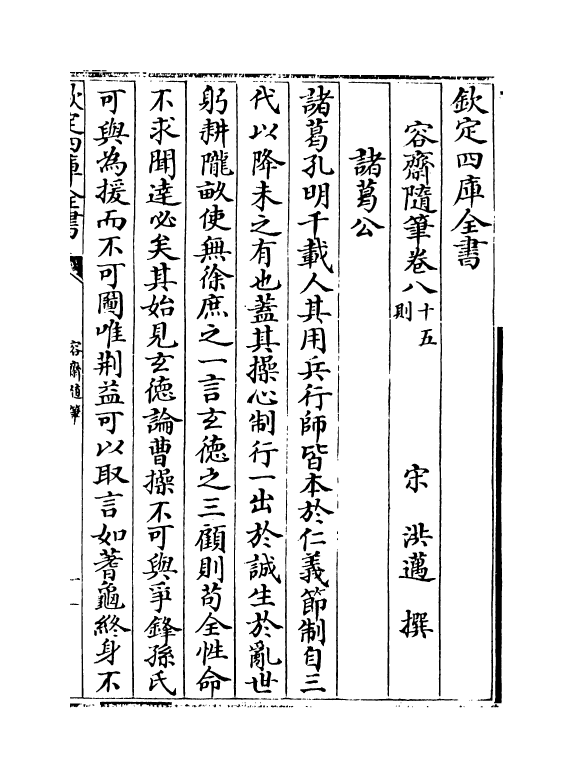 欽定四庫全書
容齋隨筆卷八 十五則 宋 洪邁 撰
諸葛公
諸葛孔明千載人其用兵行師皆本於仁義節制自三
代以降未之有也蓋其操心制行一出於誠生於亂世
躬耕隴畝使無徐庶之一言玄德之三顧則苟全性命
不求聞達必矣其始見玄德論曹操不可與爭鋒孫氏
可與為援而不可圖唯荆益可以取言如蓍龜終身不
欽定四庫全書
容齋隨筆
一